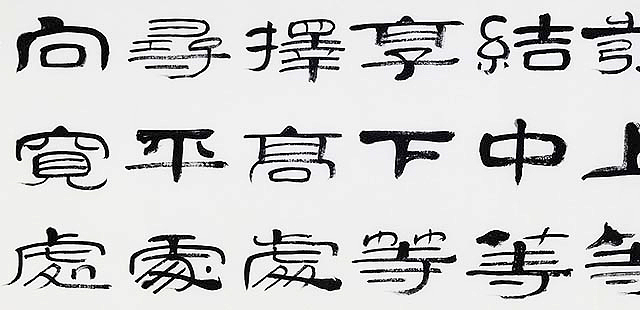 上等
結中等
享下等
擇高處
尋平處
向寬處